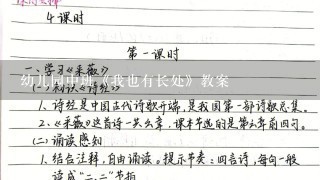 4课时
第一课时
一、学习《采薇》
(一)初识《诗经》
幼儿园中班《我也有长处》教案
1、诗经是中国古代诗歌开端,是我国第一部诗歌总集。
2、《采薇》这首诗一共六章,课本节选的是第六章前四句。
(二)诵读感知
1、结合注释,自由诵读。提示节奏:四言诗,每句一般
读成"二、二"节拍